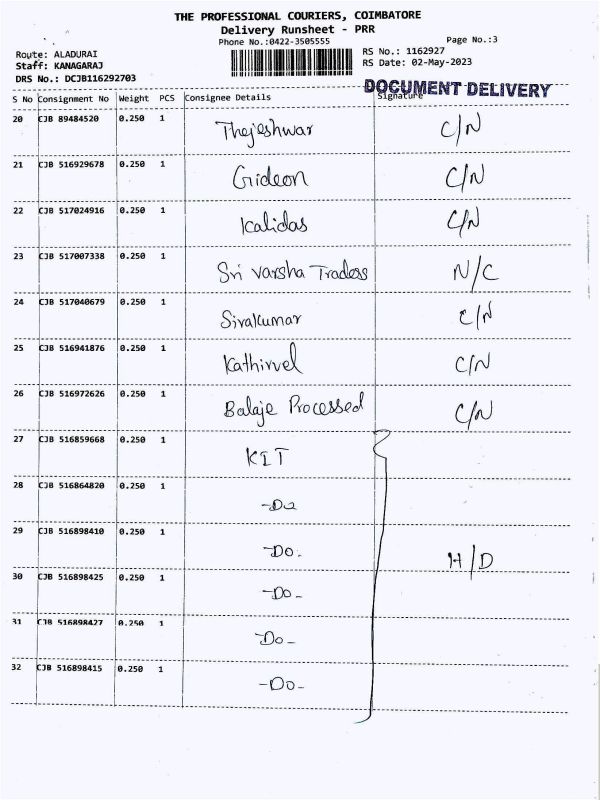 THE PROFESSIONAL COURIERS, COIMBATORE
Delivery Runsheet - PRR
Phone No.:0422-3505555 Page No.:3
Route: ALADURAI RS No.: 1162927
Staff: KANAGARAJ RS Date: 02-May-2023
DRS No.: DCJB116292703
DOCUMENT DELIVERY
S No Consignment No Weight PCS Consignee Details Signature
20 CJB 89484520 0.250 1 Thejeshwar C/N
21 CJB 516929678 0.250 1 Gideon C/N
22 CJB 517024916 0.250 1 Kalidas C/N
23 CJB 517007338 0.250 1 Sri Varsha Tradess N/C
24 CJB 517040679 0.250 1 Sivakumar C/N
25 CJB 516941876 0.250 1 Kathirvel C/N
26 CJB 516972626 0.250 1 Balaje Processed C/N
27 CJB 516859668 0.250 1 KIT
28 CJB 516864820 0.250 1 -Do
29 CJB 516898410 0.250 1 -Do- H/D
30 CJB 516898425 0.250 1 -Do-
31 CJB 516898427 0.250 1 -Do-
32 CJB 516898415 0.250 1 -Do-